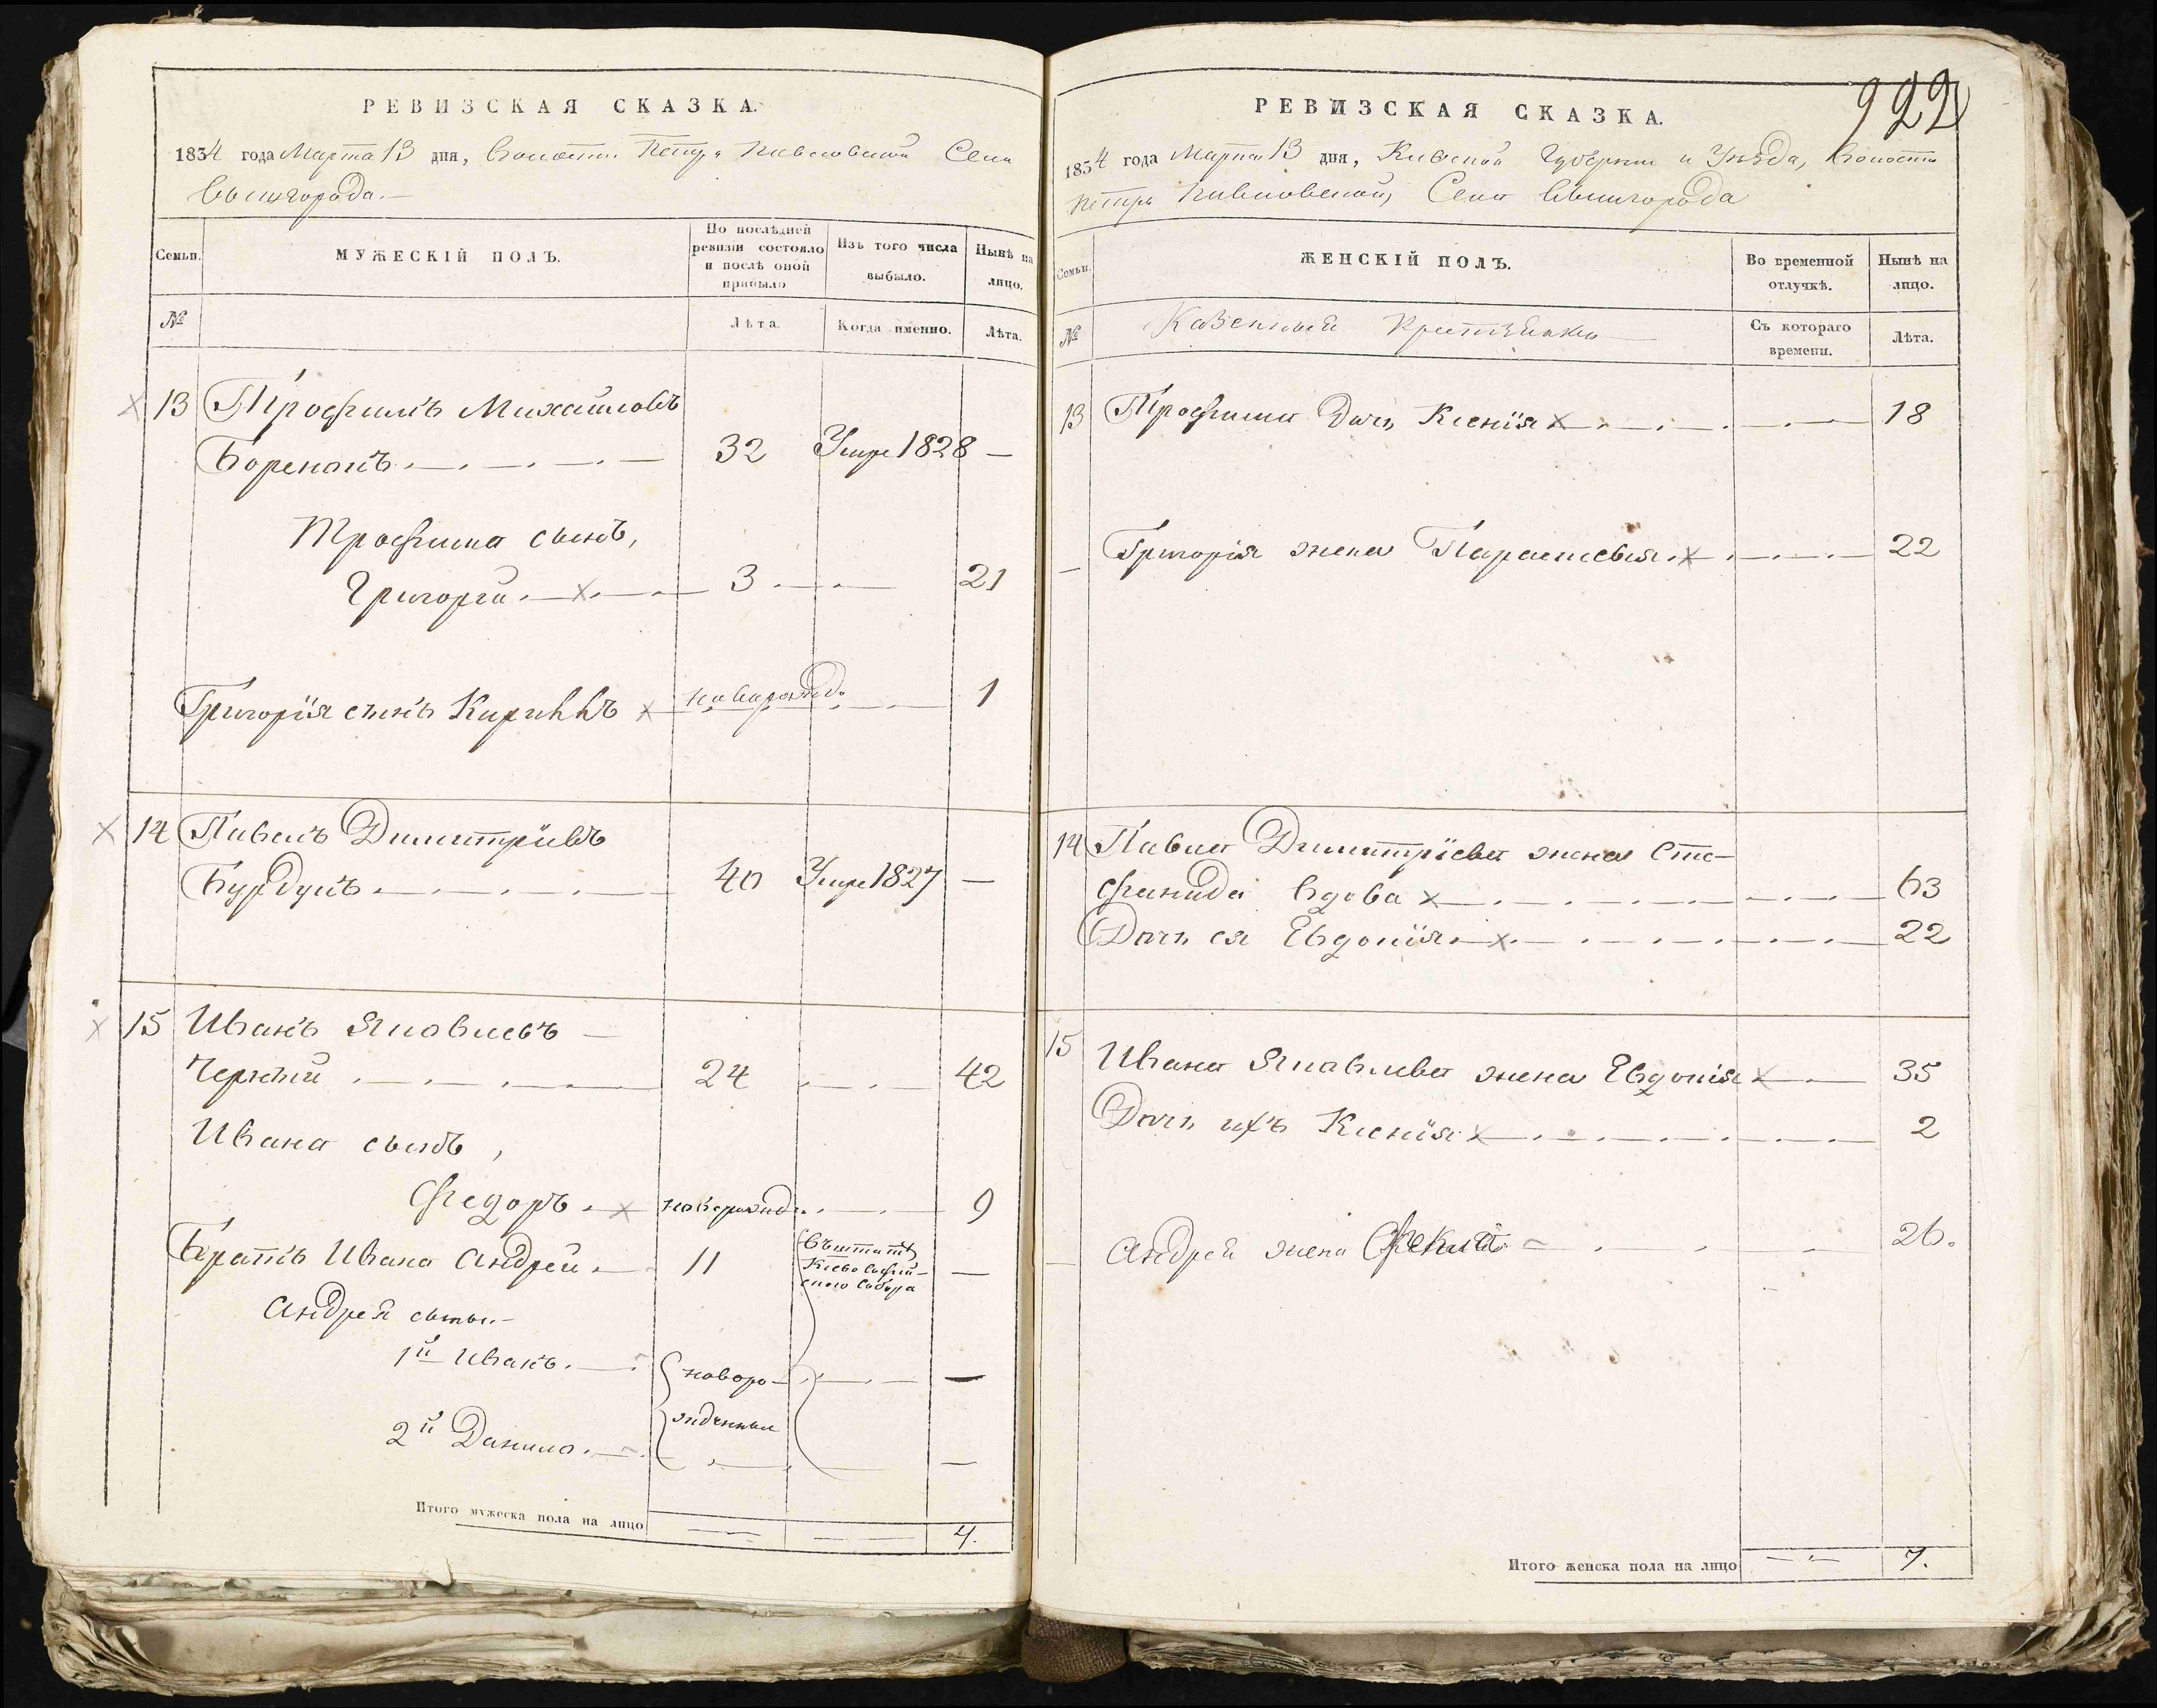 РЕВИЗСКАЯ СКАЗКА.
1834 года Марта 13 дня, Волости Петро Павловской Села
Вышгорода.—
Семьи.
МУЖЕСКІЙ ПОЛЪ.
По послѣдней ревизіи состояло и послѣ оной прибыло
Изъ того числа выбыло.
Нынѣ на лицо.
№
Лѣта.
Когда именно.
Лѣта.
13 Трофимъ Михайловъ
32 Умре 1828 —
Трофима сынъ,
Григорій 3 21
Григорія сынъ Кириллъ новорожд. 1
14 Павелъ Димитріевъ
Бурдунъ 40 Умре 1827 —
15 Иванъ Яковлевъ —
Черный 24 42
Ивана сынъ,
Федоръ новорожд. 9
Братъ Ивана Андрей 11 въ штатѣ Кіево Софійского Собора —
Андрея сыны
1й Иванъ. новоро- —
2й Данило. жденные —
Итого мужеска пола на лицо 4.
922
РЕВИЗСКАЯ СКАЗКА.
1834 года Марта 13 дня, Кіевской Губерніи и Уѣзда, Волости
Петро Павловской, Села Вышгорода
Семьи.
ЖЕНСКІЙ ПОЛЪ.
Во временной отлучкѣ.
Нынѣ на лицо.
№
Казенныи Крестьянки
Съ котораго времени.
Лѣта.
13 Трофима Дочь Ксенія 18
Григорія жена Параскевія 22
14 Павла Димитріева жена Сте-
фанида вдова 63
Дочь ея Евдокія 22
15 Ивана Яковлева жена Евдокія 35
Дочь ихъ Ксенія 2
Андрея жена Фекла 26.
Итого женска пола на лицо 7.